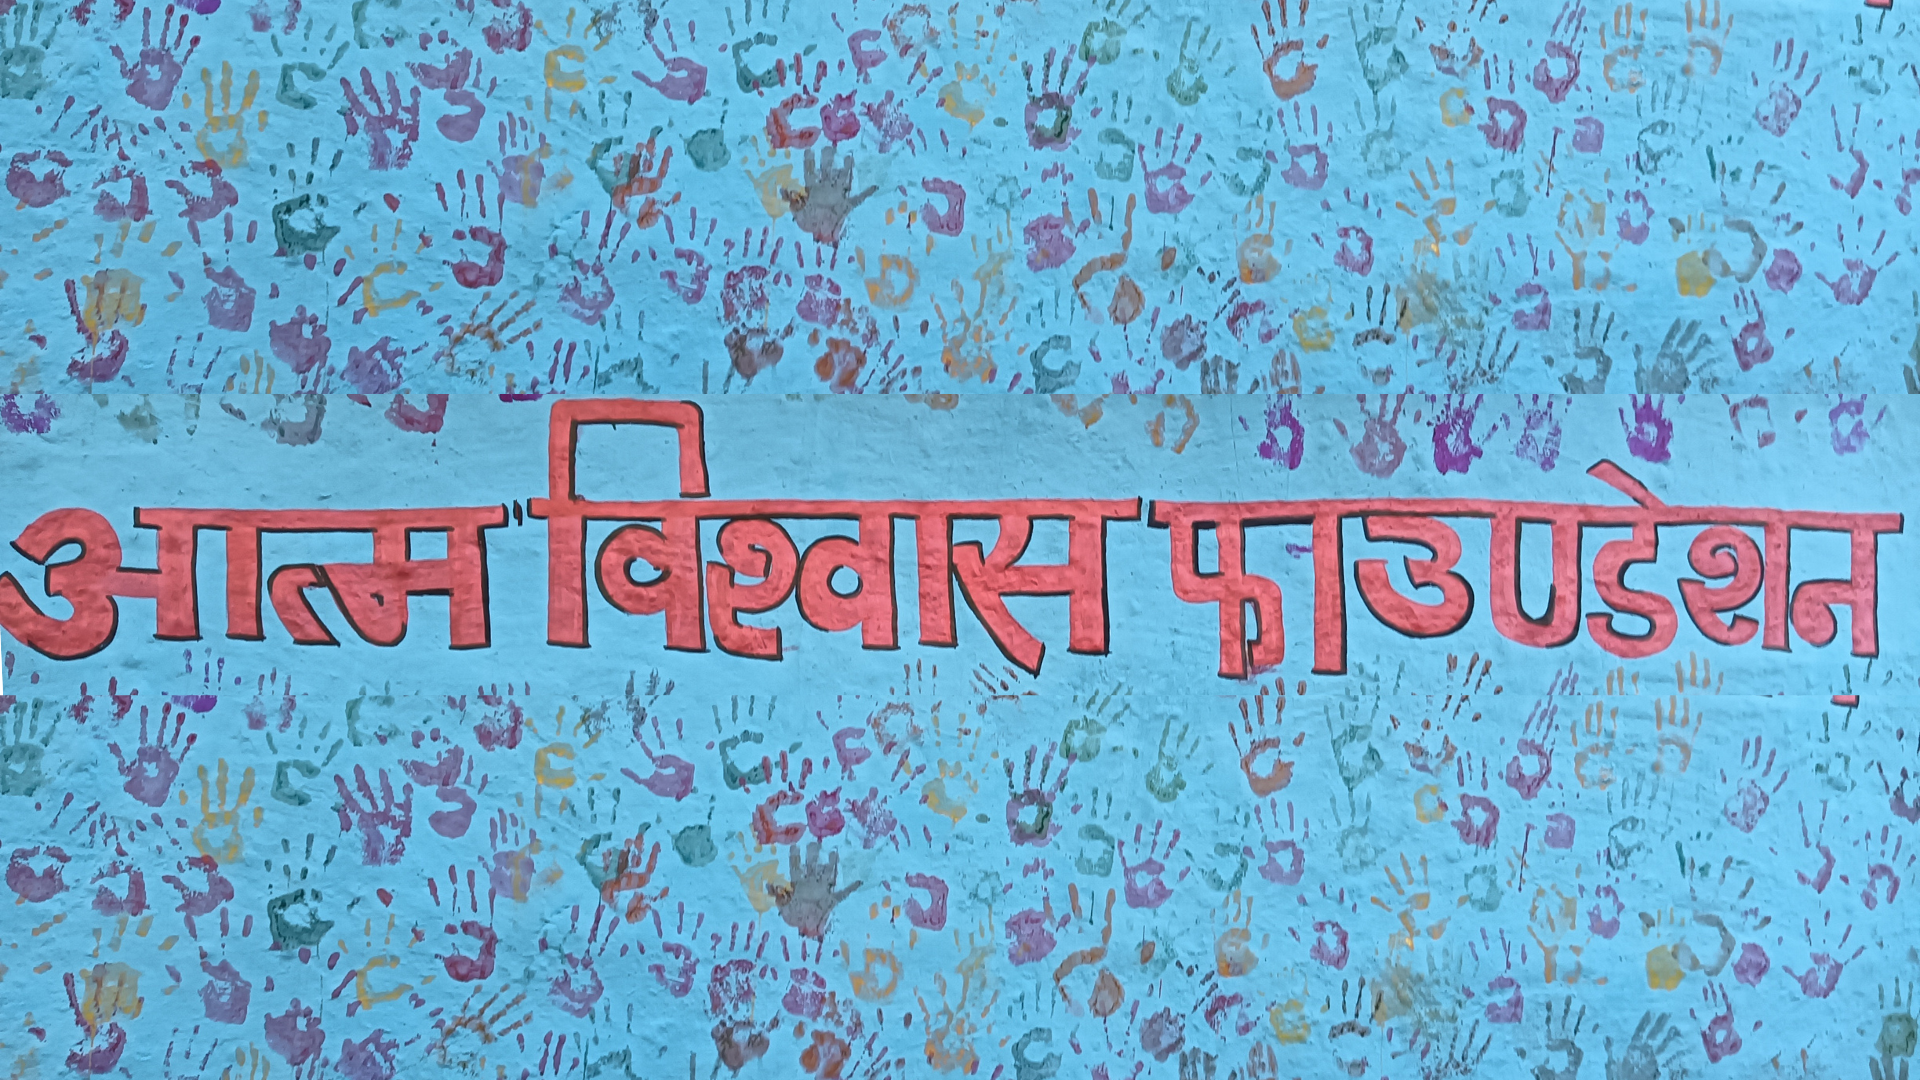 आत्म विश्वास फाउण्डेशन